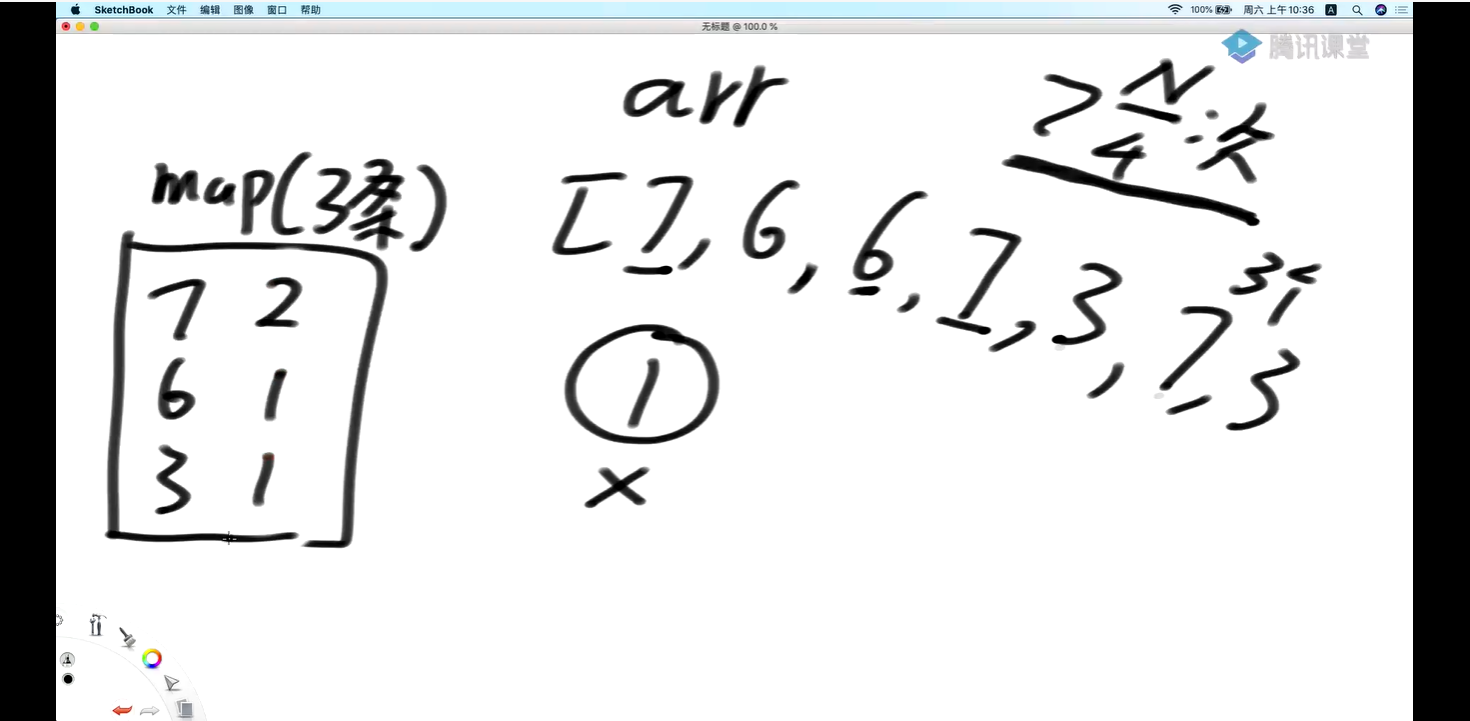 SketchBook 文件 编辑 图像 窗口 帮助 100% 周六 上午10:36 A
无标题 @ 100.0 %
腾讯课堂
arr
> N/4 次
map(3条)
[7, 6, 6, 7, 3, 7, 3
7 2
6 1
3 1
1
x